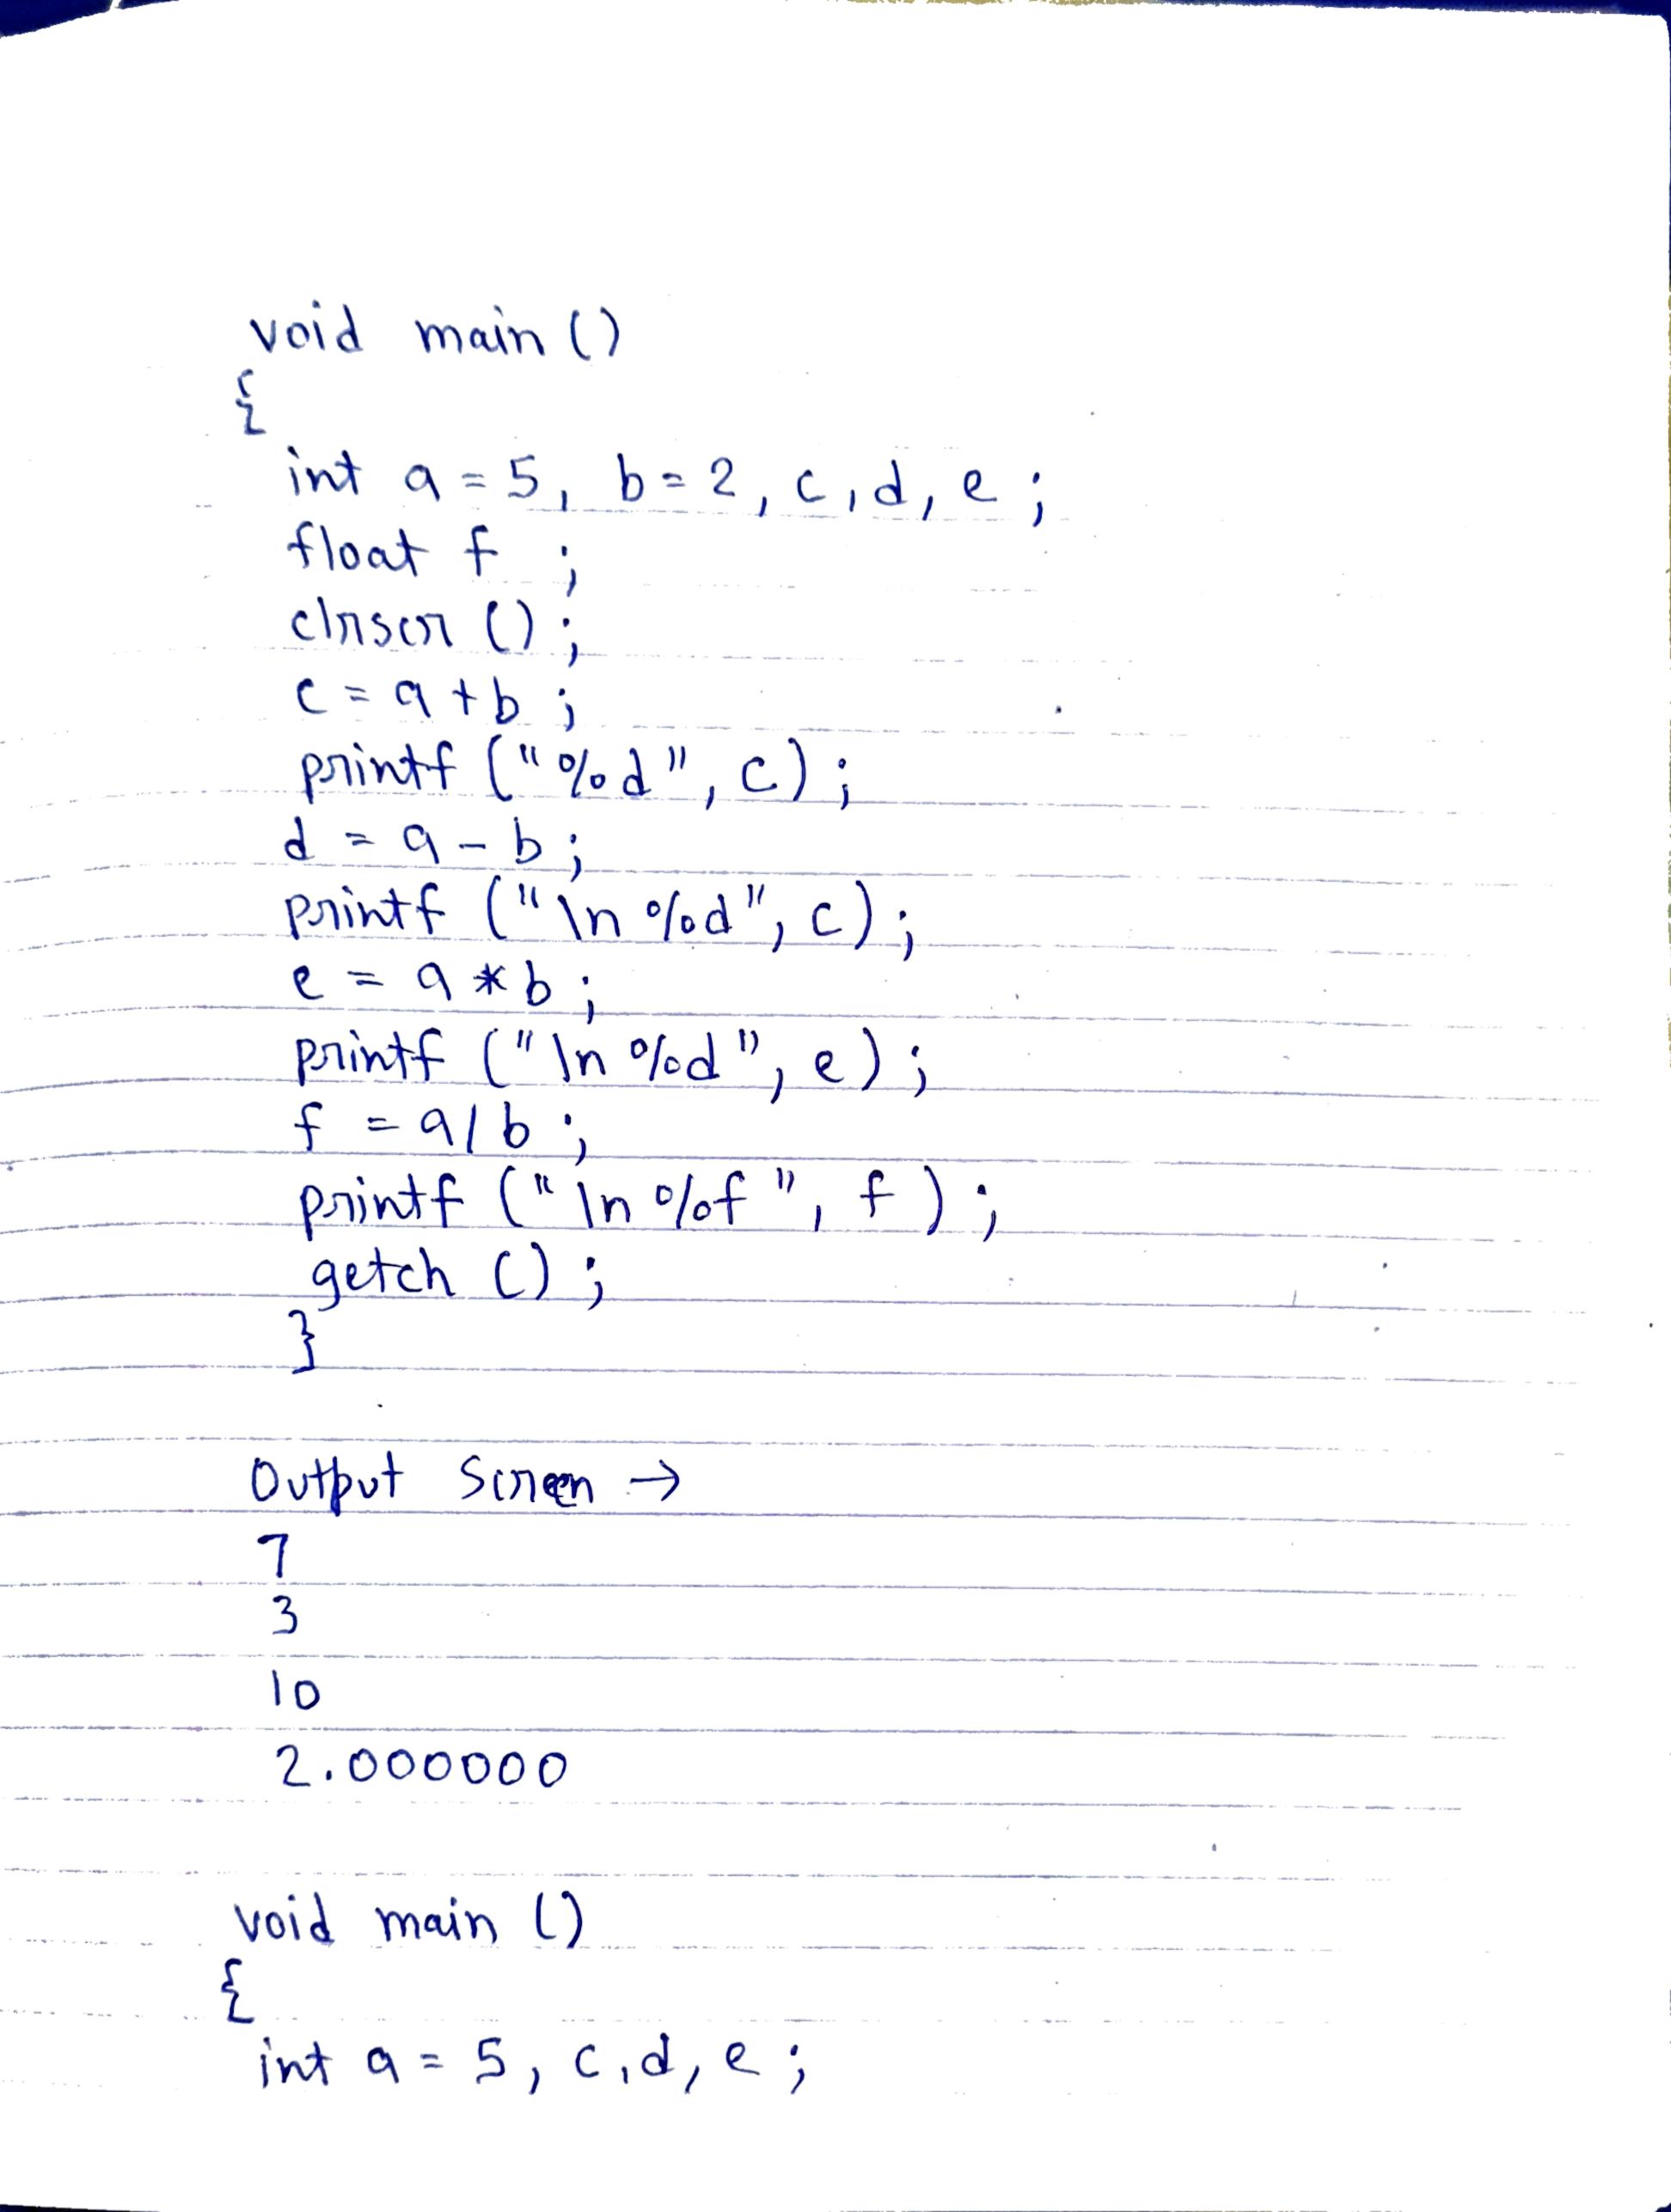 void main ()
{
int a = 5, b = 2, c, d, e ;
float f ;
clrscr () ;
c = a + b ;
printf ("%d", c) ;
d = a - b ;
printf ("\n %d", c) ;
e = a * b ;
printf ("\n %d", e) ;
f = a / b ;
printf ("\n %f", f ) ;
getch () ;
}
Output Screen →
7
3
10
2.000000
void main ()
{
int a = 5, c, d, e ;